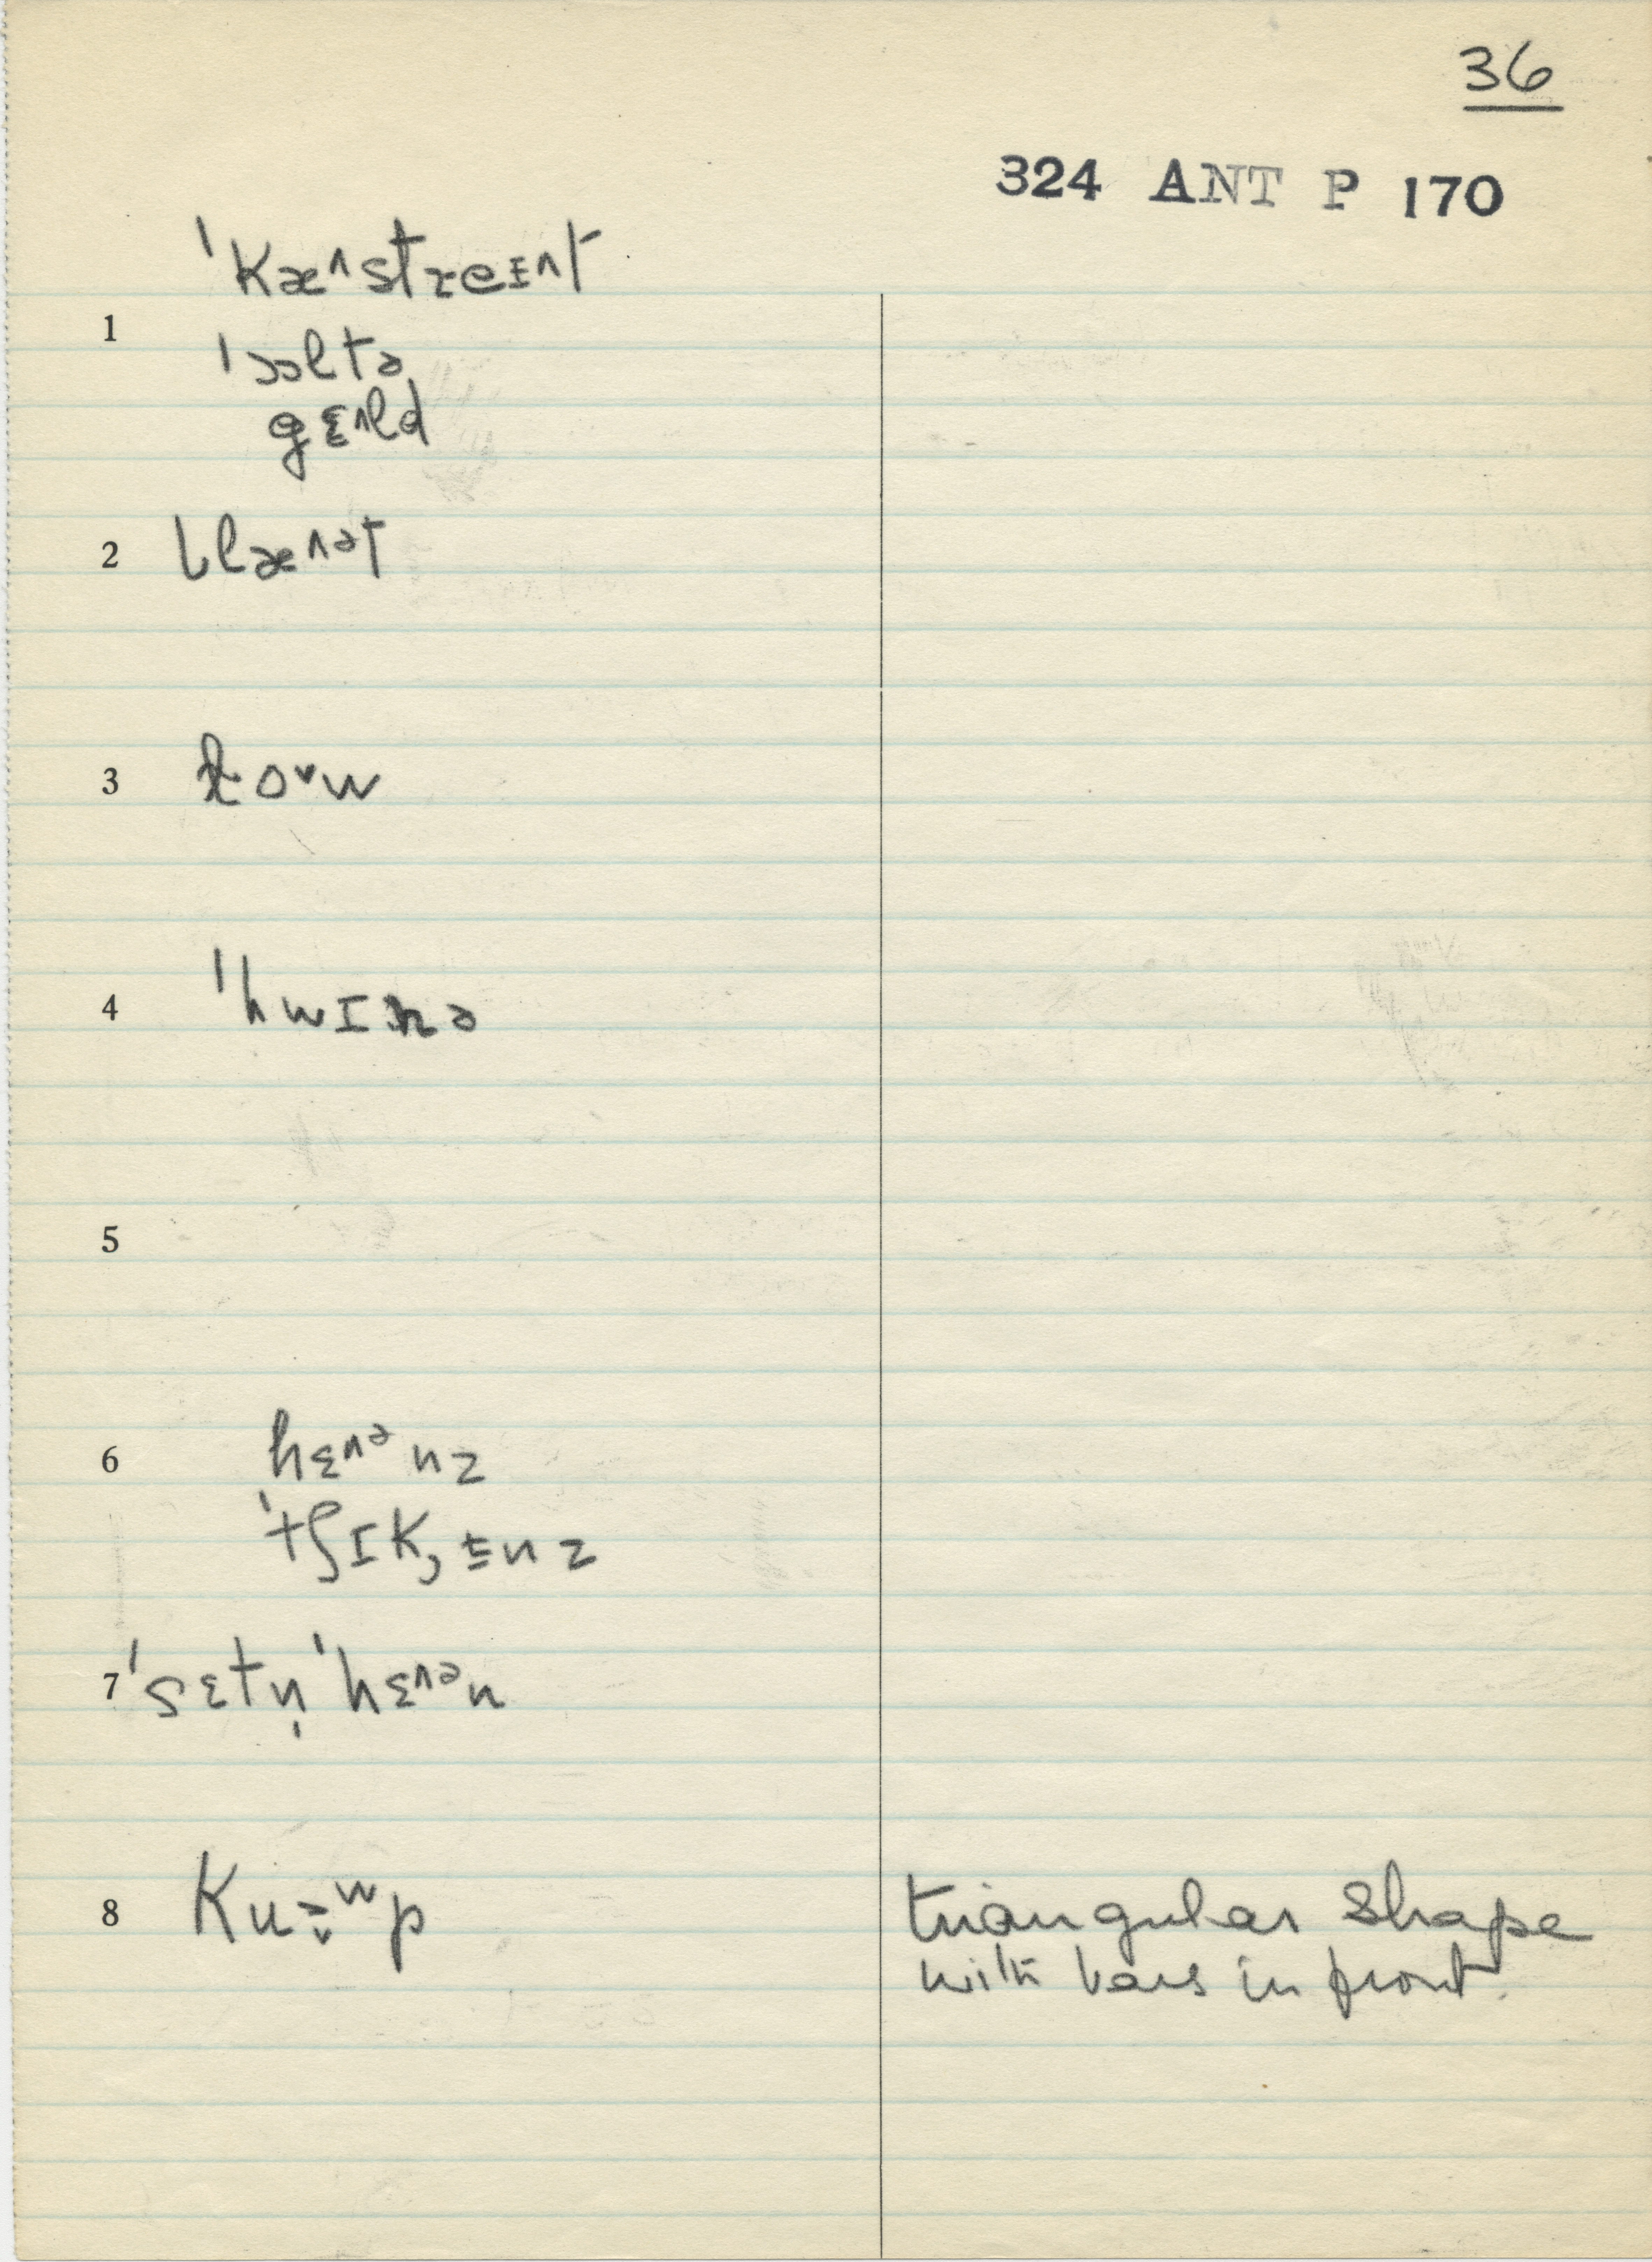 36
324 ANT P 170
ˈkæ^stɾeɪ^t
1
ˈɔəltə
gɛ^ld
2 blæ^ət
3
4
5
6 hɛ^ə nz
ˈtʃɪk, ɪnz
7 ˈsɛtn̩ ˈhɛ^ən
8 triangular shape
with bars in front.